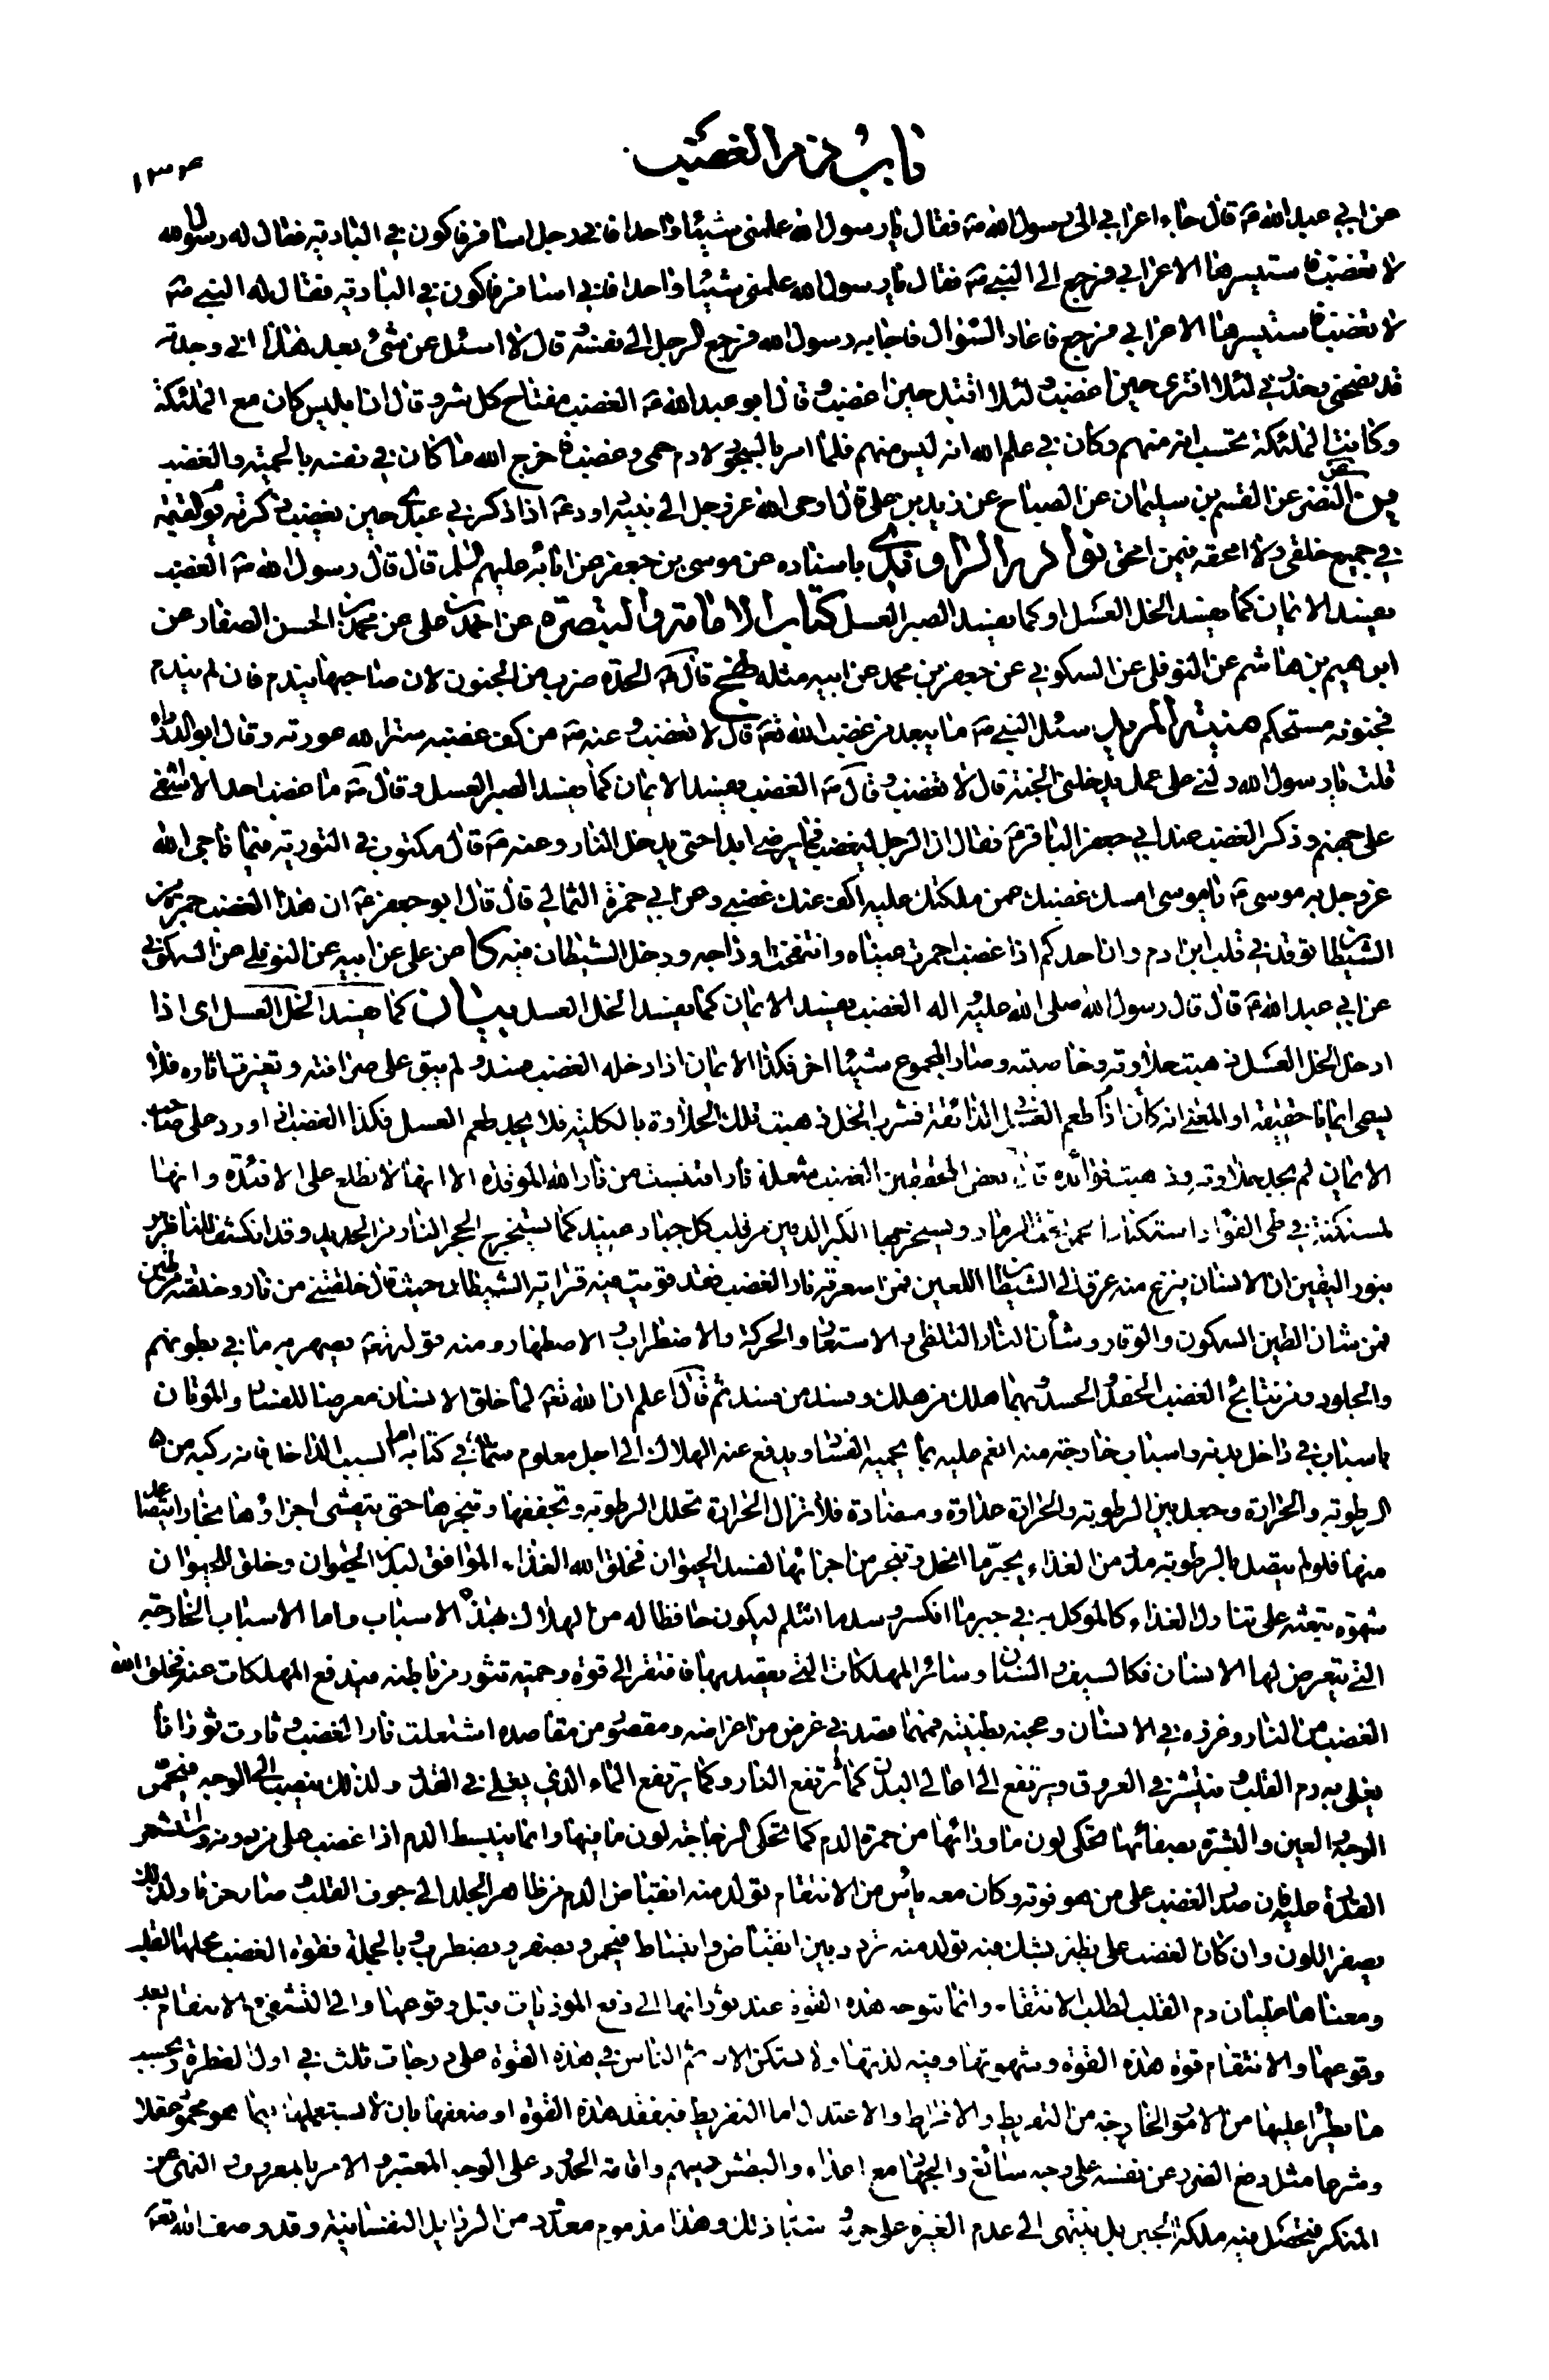 باب ذم الغضب
١٣٠
عن ابي عبد الله ع قال جاء اعرابي الى رسول الله ص فقال يا رسول الله علمني شيئا واحدا فاني رجل اسافر فاكون في البادية فقال له رسول الله
لا تغضب فاستيسرها الاعرابي فرجع الى النبي ص فقال يا رسول الله علمني شيئا واحدا فاني اسافر فاكون في البادية فقال له النبي ص
لا تغضب فاستيسرها الاعرابي فرجع فاعاد السؤال فاجابه رسول الله فرجع الرجل الى نفسه قال لا اسئل عن شئ بعد هذا اني وجدته
قد نصحني لئلا افتري حين اغضب لئلا اقتل حين اغضب قال ابو عبد الله ع الغضب مفتاح كل شر وقال ان ابليس كان مع الملئكة
وكانت الملئكة تحتسب انه منهم وكان في علم الله انه ليس منهم فلما امر بالسجود لادم حمى وغضب فاخرج الله ما كان في نفسه بالحمية والغضب
ين عن النضر عن القسم بن سليمان عن الصباح عن زيد بن علي قال اوحى الله عز وجل الى نبيه داود ع اذا ذكرني عبدي حين يغضب ذكرته يوم القيمة
في جميع خلقي ولا امحقه فيمن امحق نوادر الراوندي باسناده عن موسى بن جعفر عن ابائه عليهم السلم قال قال رسول الله ص الغضب
يفسد الايمان كما يفسد الخل العسل او كما يفسد الصبر العسل كتاب الامامة والتبصرة عن احمد بن علي عن محمد بن الحسن الصفار عن
ابرهيم بن هاشم عن النوفلي عن السكوني عن جعفر بن محمد عن ابيه مثله نهج قال ع الحدة ضرب من الجنون لان صاحبها يندم فان لم يندم
فجنونه مستحكم منية المريد سئل النبي ص ما يبعد من غضب الله تع قال لا تغضب وعنه ص من كف غضبه ستر الله عورته وقال ابو الدرداء
قلت يا رسول الله دلني على عمل يدخلني الجنة قال لا تغضب وقال ص الغضب يفسد الايمان كما يفسد الصبر العسل وقال ص ما غضب احد الا اشفى
على جهنم وذكر الغضب عند ابي جعفر الباقر ع فقال ان الرجل ليغضب فما يرضى ابدا حتى يدخل النار وعنه ع قال مكتوب في التورية فيما ناجى الله
عز وجل به موسى ع يا موسى امسك غضبك عمن ملكتك عليه اكف عنك غضبي وعن ابي حمزة الثمالي قال قال ابو جعفر ع ان هذا الغضب جمرة من
الشيطان توقد في قلب ابن ادم وان احدكم اذا غضب احمرت عيناه وانتفخت اوداجه ودخل الشيطان فيه كا عن علي عن ابيه عن النوفلي عن السكوني
عن ابي عبد الله ع قال قال رسول الله صلى الله عليه واله الغضب يفسد الايمان كما يفسد الخل العسل بيان كما يفسد الخل العسل اي اذا
ادخل الخل العسل ذهبت حلاوته وخاصيته وصار المجموع شيئا اخر فكذا الايمان اذا دخله الغضب فسد ولم يبق على صرافته وتغيرت اثاره فلا
يسمى ايمانا حقيقة او المعنى انه كان اذا طعم العسل الذائقة فشرب الخل ذهبت تلك الحلاوة بالكلية فلا يجد طعم العسل فكذا الغضب اذا ورد على صاحب
الايمان لم يجد حلاوته وذهبت فوائده قال بعض المحققين الغضب شعلة نار اقتبست من نار الله الموقدة الا انها لا تطلع على الافئدة وانها
لمستكنة في طي الفؤاد استكنان الجمر تحت الرماد ويستخرجها الكبر الدفين من قلب كل جبار عنيد كما يستخرج الحجر النار من الحديد وقد انكشف للناظرين
بنور اليقين ان الانسان ينزع منه عرق الى الشيطان اللعين فمن اسعرته نار الغضب فقد قويت فيه قرابة الشيطان حيث قال خلقتني من نار وخلقته من طين
فمن شان الطين السكون والوقار وشأن النار التلظي والاستعار والحركة والاضطراب والاصطهار ومنه قوله تع يصهر به ما في بطونهم
والجلود ومن نتايج الغضب الحقد والحسد بهما هلك من هلك وفسد من فسد ثم قال اعلم ان الله تع لما خلق الانسان معرضا للفساد والموتان
باسباب في داخل بدنه واسباب خارجة منه انعم عليه بما يحميه الفساد ويدفع عنه الهلاك الى اجل معلوم سماه في كتابه اما السبب الداخل فانه ركبه من
الرطوبة والحرارة وجعل بين الرطوبة والحرارة عداوة ومضادة فلا تزال الحرارة تحلل الرطوبة وتجففها وتبخرها حتى يتفشى اجزاؤها بخارا يتصاعد
منها فلو لم يتصل بالرطوبة مدد من الغذاء يجبر ما انحل وتبخر من اجزائها لفسد الحيوان فخلق الله الغذاء الموافق لبدن الحيوان وخلق للحيوان
شهوة تبعثه على تناول الغذاء كالموكل به في جبر ما انكسر وسد ما انثلم ليكون حافظا له من الهلاك بهذه الاسباب واما الاسباب الخارجة
التي يتعرض لها الانسان فكالسيف والسنان وسائر المهلكات التي يقصد بها فافتقر الى قوة وحمية تثور من باطنه فيدفع المهلكات عنه فخلق الله
الغضب من النار وغرزه في الانسان وعجنه بطينته فمهما قصد في غرض من اغراضه ومقصود من مقاصده اشتعلت نار الغضب وثارت ثورانا
يغلي به دم القلب وينتشر في العروق ويرتفع الى اعالي البدن كما ترتفع النار وكما يرتفع الماء الذي يغلي في القدر ولذلك ينصب الى الوجه فيحمر
الوجه والعين والبشرة بصفائها تحكي لون ما وراءها من حمرة الدم كما تحكي الزجاجة لون ما فيها وانما ينبسط الدم اذا غضب على من دونه واستشعر
القدرة عليه فان صدر الغضب على من هو فوقه وكان معه ياس من الانتقام تولد منه انقباض الدم من ظاهر الجلد الى جوف القلب وصار حزنا ولذلك
يصفر اللون وان كان الغضب على نظير يشك فيه تولد منه تردد بين انقباض وانبساط فيحمر ويصفر ويضطرب وبالجملة فقوة الغضب محلها القلب
ومعناها غليان دم القلب لطلب الانتقام وانما تتوجه هذه القوة عند ثورانها الى دفع الموذيات قبل وقوعها والى التشفي والانتقام بعد
وقوعها والانتقام قوة هذه القوة وشهوتها وفيه لذتها ولا تسكن الا به ثم الناس في هذه القوة على درجات ثلث في اول الفطرة وبحسب
ما يطرأ عليها من الامور الخارجة من التفريط والافراط والاعتدال اما التفريط فبفقد هذه القوة او ضعفها بان لا يستعملها فيما هو محمود عقلا
وشرعا مثل دفع الضرر عن نفسه على وجه سائغ والجهاد مع اعدائه والبطش عليهم واقامة الحدود على الوجه المعتبر والامر بالمعروف والنهي عن
المنكر فتحصل فيه ملكة الجبن بل ينتهي الى عدم الغيرة على حرمه واشباه ذلك وهذا مذموم معدود من الرذايل النفسانية وقد وصف الله تع